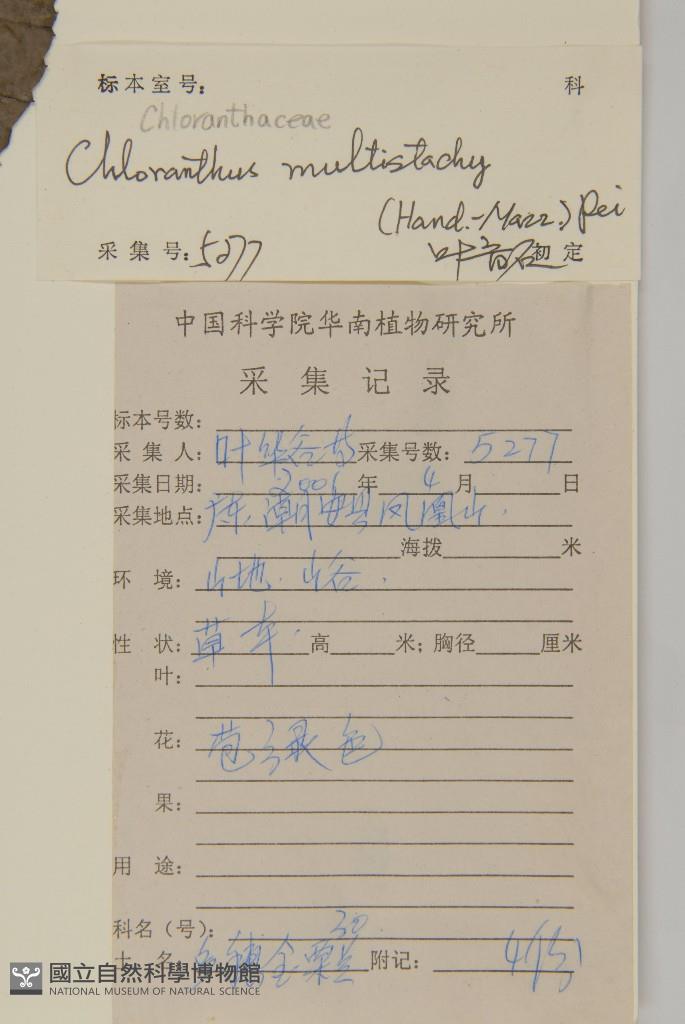 标本室号: 科
Chloranthaceae
Chloranthus multistachy
(Hand.-Mazz.) Pei
采集号: 5277 叶育石 初定
中国科学院华南植物研究所
采集记录
标本号数:
采集人: 叶华谷等 采集号数: 5277
采集日期: 2001 年 4 月 日
采集地点: 广东,潮安县凤凰山.
海拨 米
环境: 山地.山谷.
性状: 草本. 高 米; 胸径 厘米
叶:
花: 绿色
果:
用途:
科名(号): 30
土名 穗金粟兰 附记: 4份
國立自然科學博物館
NATIONAL MUSEUM OF NATURAL SCIENCE